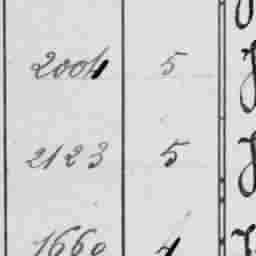 2004 5
2123 5
1660 4